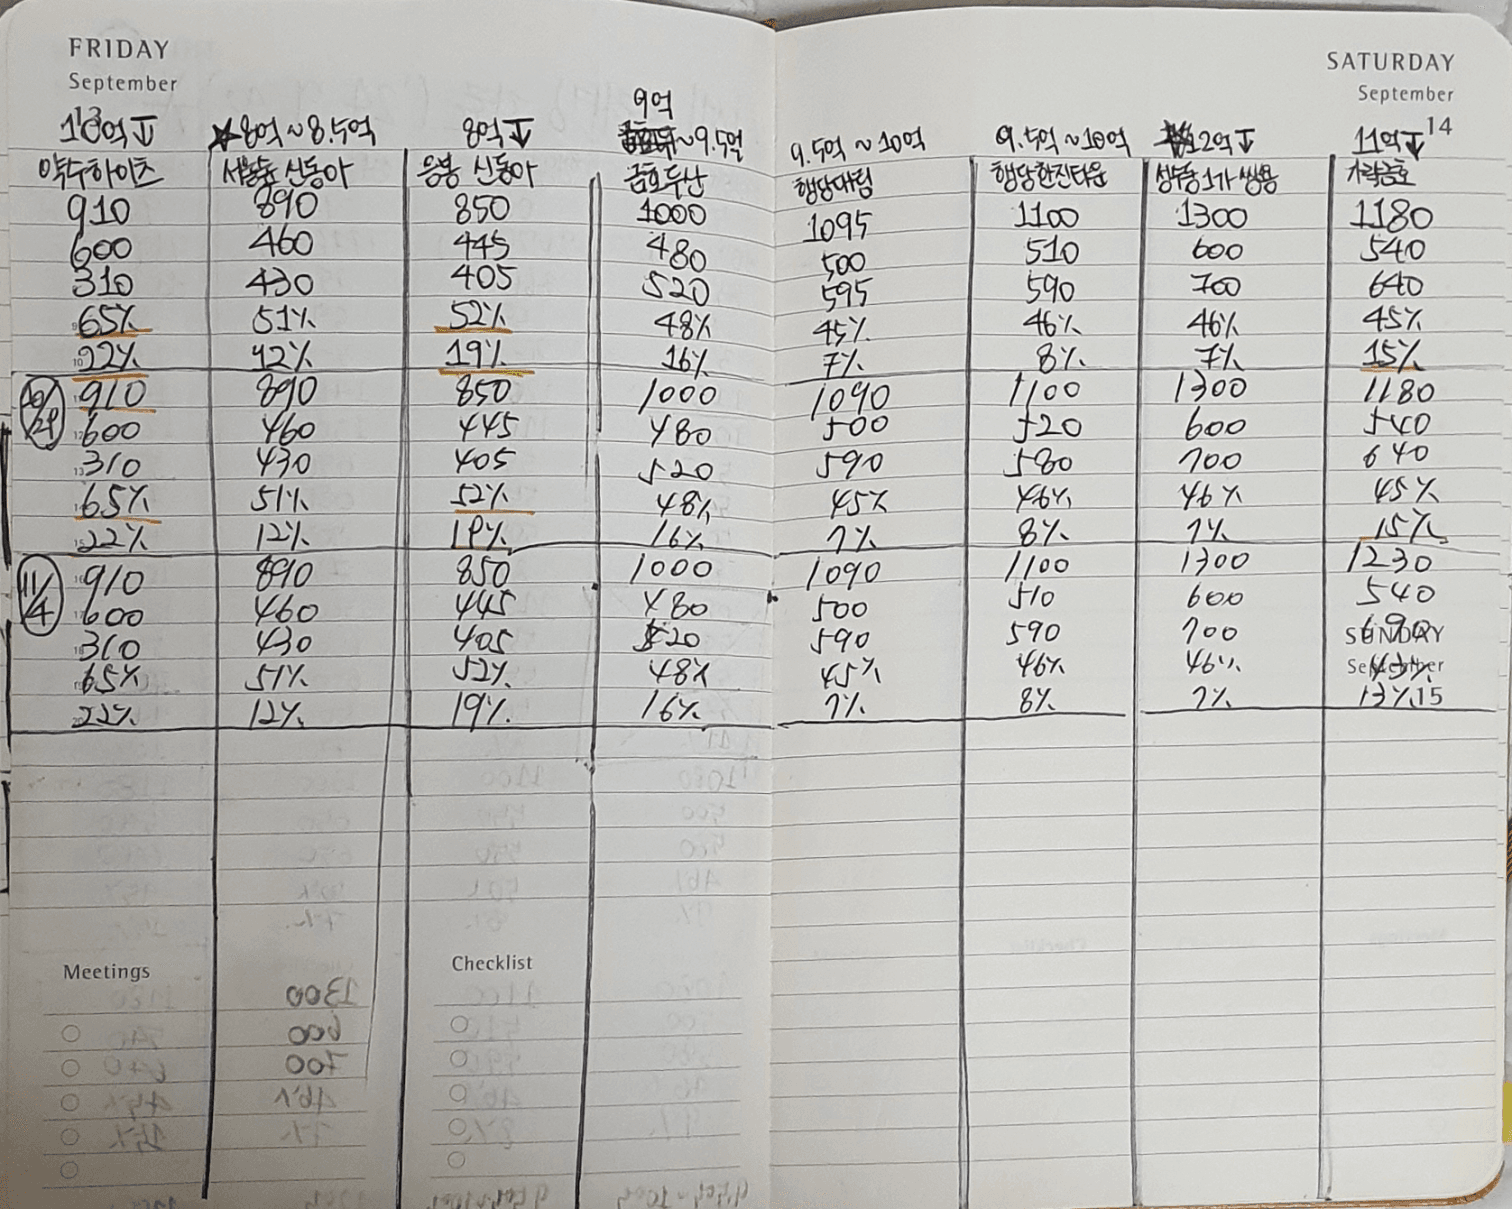 FRIDAY
September
SATURDAY
September
14
9억
10억↓ ★8억~8.5억 8억↓ ~9.5억 9.5억~10억 9.5억~10억 12억↓ 11억↓
약수하이츠 서울숲 신동아 응봉 신동아 금호두산 행당대림 행당한진타운 성수동1가 쌍용 가락금호
910 890 850 1000 1095 1100 1300 1180
600 460 445 480 500 510 600 540
310 430 405 520 595 590 700 640
65% 51% 52% 48% 45% 46% 46% 45%
22% 12% 19% 16% 7% 8% 7% 15%
10/29 910 890 850 1000 1090 1100 1300 1180
600 460 445 480 500 520 600 540
310 430 405 520 590 580 700 640
65% 51% 52% 48% 45% 46% 46% 45%
22% 12% 19% 16% 7% 8% 7% 15%
11/4 910 890 850 1000 1090 1100 1300 1230
600 460 445 480 500 510 600 540
310 430 405 520 590 590 700 690
SUNDAY
65% 51% 52% 48% 45% 46% 46% 43%
September
22% 12% 19% 16% 7% 8% 7% 13%
15
Meetings
Checklist